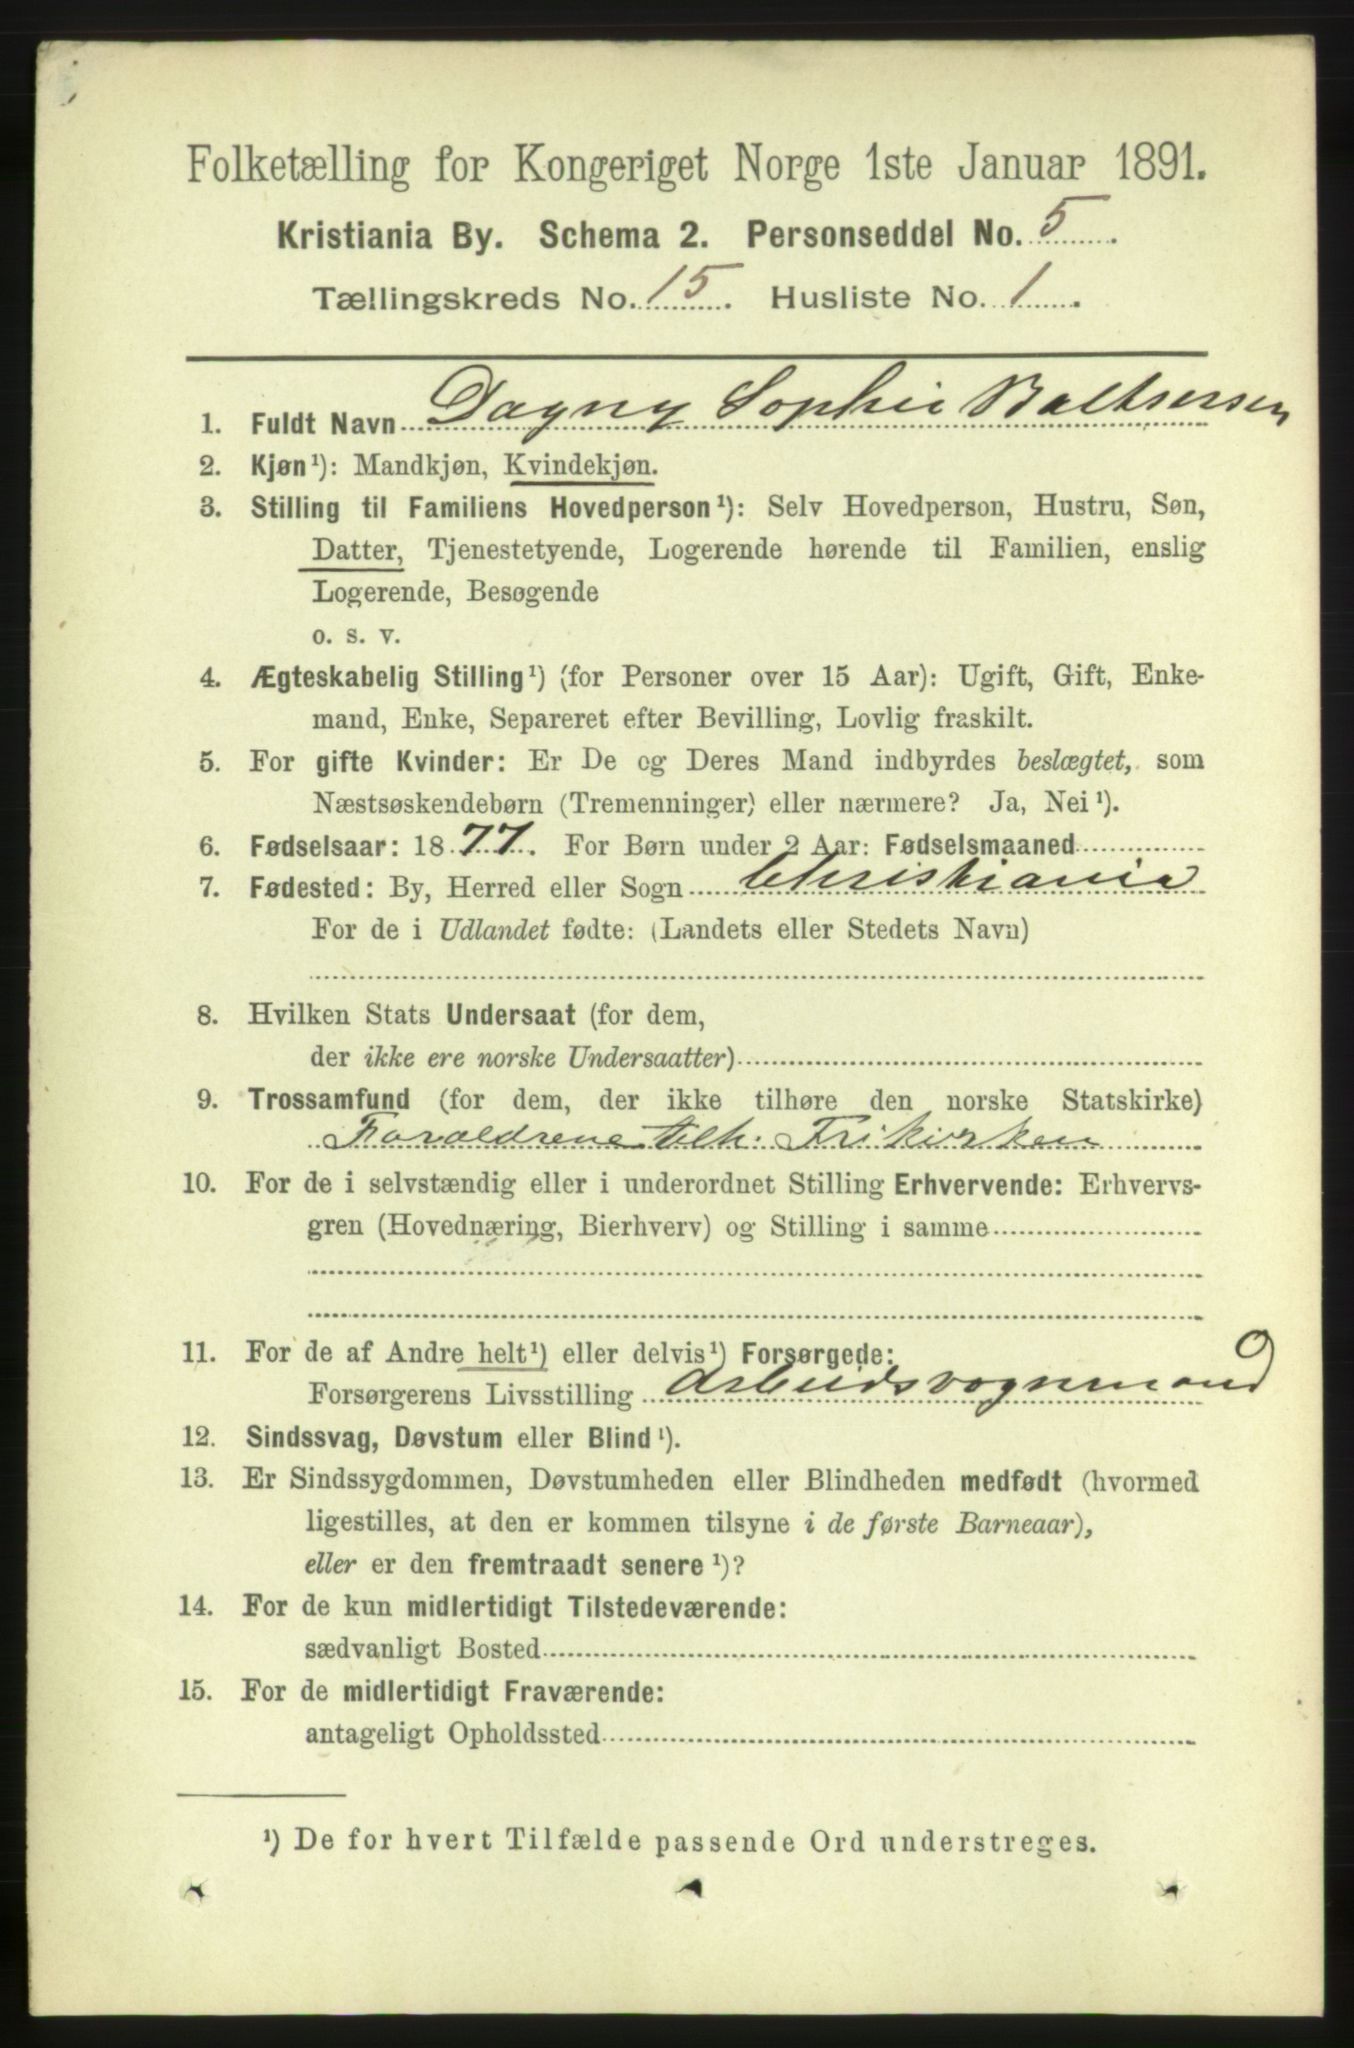 Folketælling for Kongeriget Norge 1ste Januar 1891.
Kristiania By. Schema 2. Personseddel No. 5.
Tællingskreds No. 15. Husliste No. 1.
1. Fuldt Navn Dagny Sophie Baltsersen
2. Kjøn¹): Mandkjøn, Kvindekjøn.
3. Stilling til Familiens Hovedperson¹): Selv Hovedperson, Hustru, Søn,
Datter, Tjenestetyende, Logerende hørende til Familien, enslig
Logerende, Besøgende
o. s. v.
4. Ægteskabelig Stilling¹) (for Personer over 15 Aar): Ugift, Gift, Enke-
mand, Enke, Separeret efter Bevilling, Lovlig fraskilt.
5. For gifte Kvinder: Er De og Deres Mand indbyrdes beslægtet, som
Næstsøskendebørn (Tremenninger) eller nærmere? Ja, Nei¹).
6. Fødselsaar: 1877. For Børn under 2 Aar: Fødselsmaaned
7. Fødested: By, Herred eller Sogn Christiania
For de i Udlandet fødte: (Landets eller Stedets Navn)
8. Hvilken Stats Undersaat (for dem,
der ikke ere norske Undersaatter)
9. Trossamfund (for dem, der ikke tilhøre den norske Statskirke)
Foraeldrene tilh. Frikirken
10. For de i selvstændig eller i underordnet Stilling Erhvervende: Erhvervs-
gren (Hovednæring, Bierhverv) og Stilling i samme
11. For de af Andre helt¹) eller delvis¹) Forsørgede:
Forsørgerens Livsstilling Arbeidsvognmand
12. Sindssvag, Døvstum eller Blind¹).
13. Er Sindssygdommen, Døvstumheden eller Blindheden medfødt (hvormed
ligestilles, at den er kommen tilsyne i de første Barneaar),
eller er den fremtraadt senere¹)?
14. For de kun midlertidigt Tilstedeværende:
sædvanligt Bosted
15. For de midlertidigt Fraværende:
antageligt Opholdssted
¹) De for hvert Tilfælde passende Ord understreges.